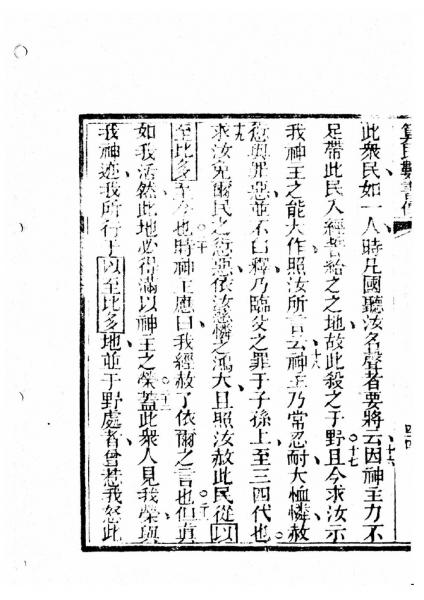 此衆民如一人時凡國聽汝名聲者要將云因神主力不
足帶此民入經誓給之之地故此殺之于野且今求汝示
我神主之能大作照汝所言云神主乃常忍耐大恤憐赦
愆與罪惡並不曰釋乃臨父之罪于子孫上至三四代也
求汝寬爾民之愆惡依汝慈憐之鴻大且照汝赦此民從以
至比多至今也時神主應曰我經赦了依爾之言也但眞
如我活然此地必得滿以神主之榮蓋此衆人見我榮與
我神迹我所行于以至比多地並于野處者曾惹我怒此